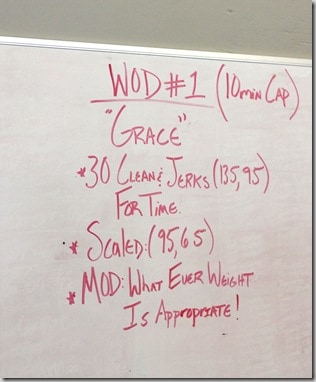 WOD #1 (10min Cap)
"Grace"
*30 Clean & Jerks (135, 95)
For Time.
* Scaled: (95, 65)
* MOD: What Ever Weight
Is Appropriate!